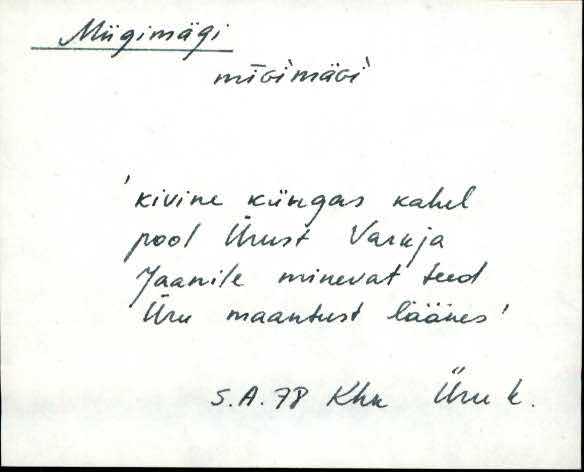 Mügimägi
mīGi'mäGi'
'kivine küngas kahel
pool Ürust Varuja
Jaanile minevat teed
Üru maantust läänes'
S.A. 78 Khn Üru k.